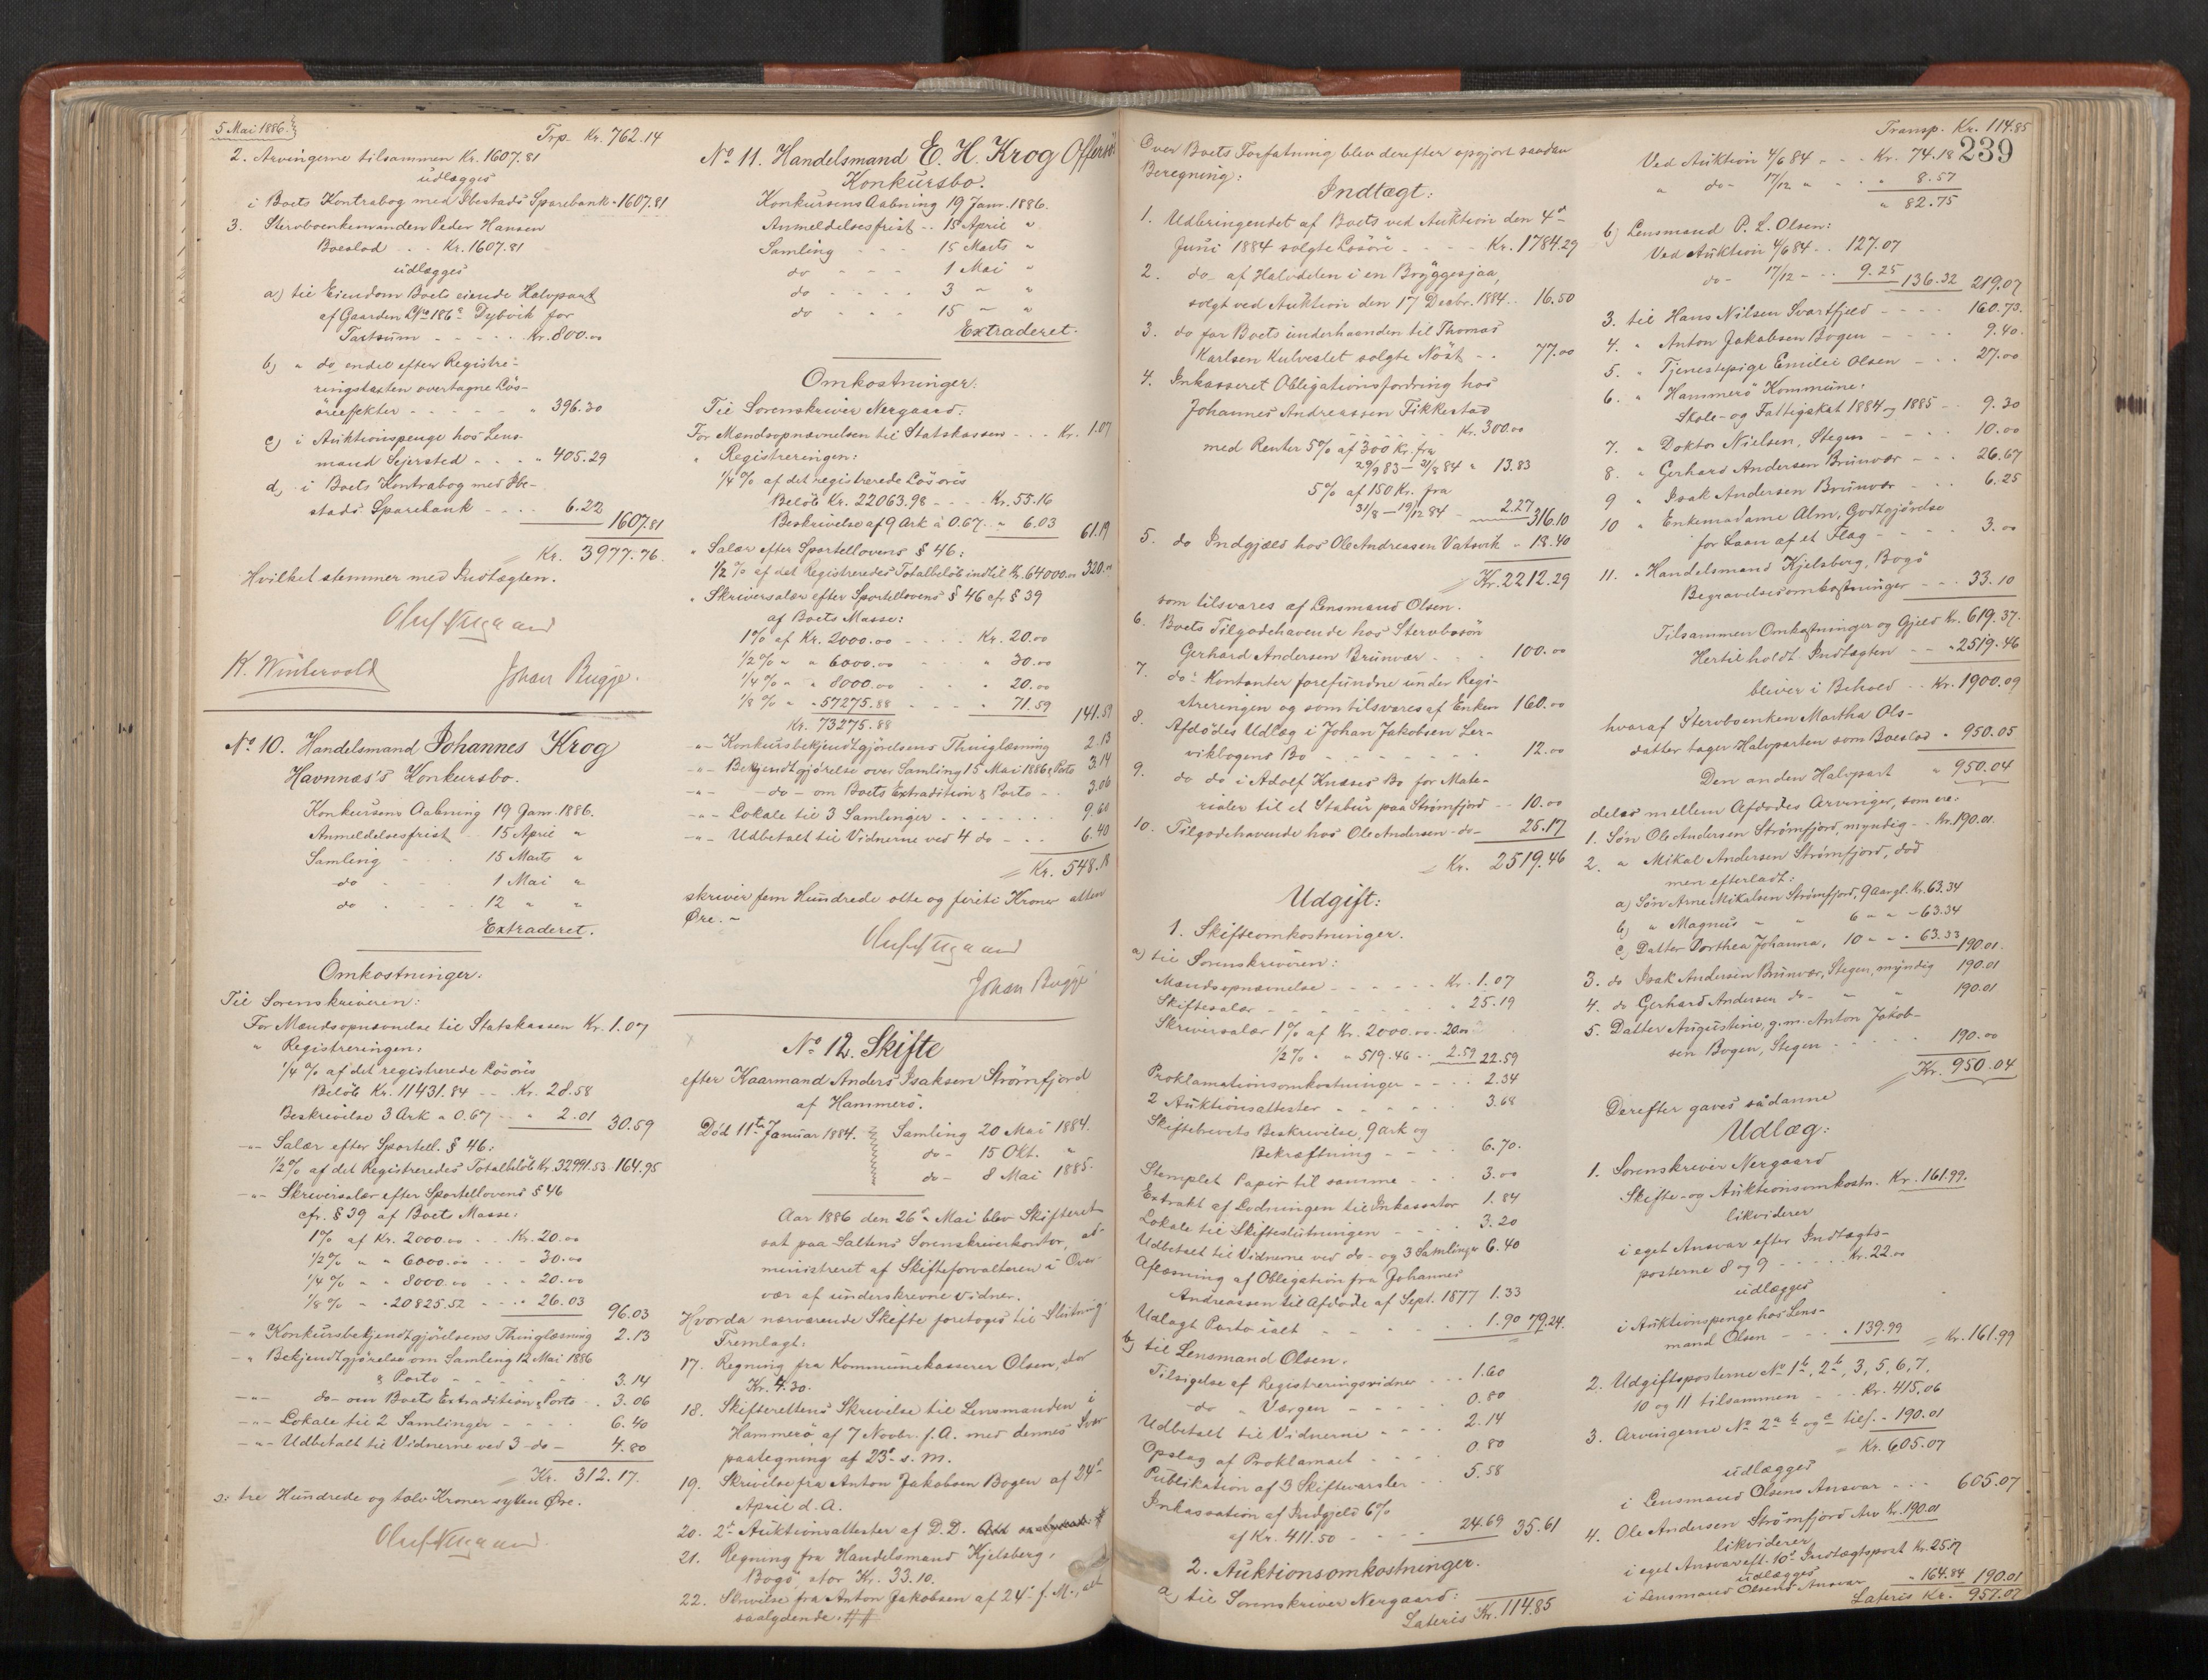 5 Mai 1886.
Trp. Kr. 762.14
2. Arvingerne tilsammen Kr. 1607.81
udlægges
i Boets Kontrabog med Ibestads Sparebank " 1607.81
3. Stervboenkemanden Peder Hansen
Boeslod . . Kr. 1607.81
udlægges
a) til Eiendom Boets eiende Halvpart
af Gaarden L No 186 a Dybvik for
Taxtsum - - - - - Kr. 800.00
b) " do endel efter Registre-
ringstaxten overtagne Løs-
øreeffekter - - - - - " 396.30
c) i Auktionspenge hos Lens-
mand Sejersted - - - " 405.29
d) i Boets Kontrabog med Ibe-
stads Sparebank - - - . 6.22
1607.81
Kr. 3977.76
Hvilket stemmer med Indtægten.
Oluf Nergaard
K. Wintervold Johan Bugge.
No 10. Handelsmand Johannes Krog
Havnnæs's Konkursbo.
Konkursens Aabning 19 Janr. 1886.
Anmeldelsesfrist . . 15 April "
Samling - . . 15 Marts "
do . . . 1 Mai "
do . . . 12 " "
Extraderet.
Omkostninger.
Til Sorenskriveren:
For Mandsopnævnelse til Statskassen Kr. 1.07
" Registreringen:
1/4 % af det registrerede Løsøris
Beløb Kr. 11431.84 - - . Kr. 28.58
Beskrivelse 3 Ark a 0.67 - - " 2.01 30.59
-"- Salær efter Sportell. § 46:
1/2 % af det Registreredes Totalbeløb Kr. 32991.53 - 164.95
-"- Skriversalær efter Sportellovens § 46
cfr. § 39 af Boets Masse:
1 % af Kr. 2000.00 . . Kr. 20.00
1/2 % " " 6000.00 . . - 30.00
1/4 % " " 8000.00 . . - 20.00
1/8 % " " 20825.52 - - - " 26.03
96.03
-" Konkursbekjendtgjørelsens Thinglæsning 2.13
-" Bekjendtgjørelse om Samling 12 Mai 1886
& Porto - - - - 3.14
-"- do - om Boets Extradition & Porto - . 3.06
-"- Lokale til 2 Samlinger - - - - 6.40
-"- Udbetalt til Vidnerne ved 3 - do - 4.80
Kr. 312.17.
ɔ: tre Hundrede og tolv Kroner sytten Øre.
Oluf Nergaard.
No 11. Handelsmand E. H. Krog Offersø
Konkursbo.
Konkursens Aabning 19 Janr. 1886.
Anmeldelsesfrist . . 15 April "
Samling - - 15 Marts "
do - - - 1 Mai "
do - - - - 3 " "
do - - - 15 " "
Extraderet.
Omkostninger:
Til Sorenskriver Nergaard:
For Mandsopnævnelsen til Statskassen . . . Kr. 1.07
" Registreringen:
1/4 % af det registrerede Løsøris
Beløb Kr. 22063.98 - - - Kr. 55.16
Beskrivelse af 9 Ark à 0.67 . . " 6.03 61.19
" Salær efter Sportellovens § 46:
1/2 % af det Registreredes Totalbeløb indtil Kr. 64000.00 320.00
" Skriversalær efter Sportellovens § 46 cfr § 39
af Boets Masse:
1 % af Kr. 2000.00 - - - . Kr. 20.00
1/2 % " " 6000.00 . . . " 30.00
1/4 % " " 8000.00 . . . " 20.00
1/8 % " " 57275.88 - - - " 71.59
Kr. 73275.88 141.59
-"- Konkursbekjendtgjørelsens Thinglæsning 2.13
-"- Bekjendtgjørelse over Samling 15 Mai 1886 & Porto 3.14
-"- - do - om Boets Extradition & Porto - - 3.06
-"- Lokale til 3 Samlinger - - - - - - 9.60
-"- Udbetalt til Vidnerne ved 4 do - . . 6.40
Kr. 548.18
skriver fem Hundrede otte og firti Kroner atten
Øre. -
Oluf Nergaard
Johan Bugge
No 12. Skifte
efter Kaarmand Anders Isaksen Strømfjord
af Hammerø.
Død 11te Januar 1884. Samling 20 Mai 1884.
do - 15 Okt. "
do - 8 Mai 1885.
Aar 1886 den 26de Mai blev Skifteret
sat paa Saltens Sorenskriverkontor, ad-
ministreret af Skifteforvalteren i Over
vær af underskrevne Vidner.
Hvorda nærværende Skifte foretoges til Slutning
Fremlagt:
17. Regning fra Kommunekasserer Olsen, stor
Kr. 4.30.
18. Skifterettens Skrivelse til Lensmanden i
Hammerø af 7 Novbr. f. A. med dennes Svar
paategning af 23de s. M.
19. Skrivelse fra Anton Jakobsen Bogen af 24de
April d. A.
20. 2de Auktionsattester af D. D.
21. Regning fra Handelsmand Kjelsberg,
Bogø, stor Kr. 33.10.
22. Skrivelse fra Anton Jakobsen af 24de f. M., alt
saalydende: # #
Over Boets Forfatning blev derefter opgjort saadan
Beregning:
Indtægt:
1. Udbringendet af Boets ved Auktion den 4de
Juni 1884 solgte Løsøre - - - - Kr. 1784.29
2. do - af Halvdelen i en Bryggesjaa,
solgt ved Auktion den 17 Decbr. 1884 . . 16.50
3. do for Boets underhaanden til Thomas
Karlsen Kulvestet solgte Nøst - . 77.00
4. Inkasseret Obligationsfordring hos
Johannes Andreassen Fikkestad
Kr. 300.00
med Renter 5 % af 300 Kr. fra
29/9 83 - 31/8 84 " 13.83
5 % af 150 Kr. fra
31/8 - 19/12 84 - 2.27 316.10
5. do Indgjæld hos Ole Andreasen Vatsvik " 18.40
Kr. 2212.29
som tilsvares af Lensmand Olsen.
6. Boets Tilgodehavende hos Stervbosøn
Gerhard Andersen Brunvær - - 100.00
7. do: Kontanter forefundne under Regi-
streringen og som tilsvares af Enken 160.00
8. Afdødes Udlæg i Johan Jakobsen Ler-
vikbogens Bo - - - - - - - 12.00
9. do do i Adolf Knæses Bo for Mate-
rialer til et Stabur paa Strømfjord - - 10.00
10. Tilgodehavende hos Ole Andersen - do - 25.17
Kr. 2519.46
Udgift:
1. Skifteomkostninger.
a) til Sorenskriveren:
Mandsopnævnelse - - - - - - Kr. 1.07
Skiftesalær - - - - - - " 25.19
Skriversalær 1 % af Kr. 2000.00 - 20.00
1/2 % " " 519.46 . . 2.59 22.59
Proklamationsomkostninger - - - - 2.34
2 Auktionsattester - - - - - - 3.68
Skiftebrevets Beskrivelse, 9 ark og
Bekræftning - - - - 6.70.
Stemplet Papir til samme - - - 3.00
Extrakt af Lodningen til Inkassator 1.84
Lokale til Skifteslutningen - - - 3.20
Udbetalt til Vidnerne ved do - og 3 Samlinger 6.40
Aflæsning af Obligation fra Johannes
Andreassen til Afdøde af Sept. 1877 1.33
Udlagt Porto ialt - - - - - . . 1.90 79.24.
b) til Lensmand Olsen.
Tilsigelse af Registreringsvidner . . . 1.60
- do " Værgen - - - - - 0.80
Udbetalt til Vidnerne - - - - 2.14
Opslag af Proklamaet - - - - 0.80
Publikation af 3 Skiftevarsler - 5.58
Inkassation af Indgjeld 6 %
af Kr. 411.50 - - - - 24.69 35.61
2. Auktionsomkostninger.
a) til Sorenskriver Nergaard:
Lateris Kr. 114.85
Transp. Kr. 114.85
239
Ved Auktion 4/6 84 - - . Kr. 74.18
" do - 17/12 " - . " 8.57
" 82.75
b) Lensmand P. L. Olsen:
Ved Auktion 4/6 84 . . 127.07
do - 17/12 - . . 9.25 136.32 219.07
3. til Hans Nilsen Svartfjeld - - - - 160.73.
4. " Anton Jakobsen Bogen - - - 9.40.
5. " Tjenestepige Emilie Olsen - - . 27.00
6. " Hammerø Kommune:
Skole- og Fattigskat 1884 og 1885 - . 9.30
7. " Doktor Nielsen, Stegen - - - - 10.00
8. " Gerhard Andersen Brunvær - - . 26.67
9 " Isak Andersen Brunvær - . . 6.25
10 " Enkemadame Alm, Godtgjørelse
for Laan af et Flag - - - 3.00
11. " Handelsmand Kjelsberg, Bogø
Begravelsesomkostninger - - . 33.10
Tilsammen Omkostninger og Gjeld Kr. 619.37.
Hertil holdt Indtægten - - " 2519.46
bliver i Behold . . Kr. 1900.09
hvoraf Stervboenken Martha Ols-
datter tager Halvparten som Boeslod " 950.05
Den anden Halvpart " 950.04
deles mellem Afdødes Arvinger, som ere:
1. Søn Ole Andersen Strømfjord, myndig - . Kr. 190.01
2. " Mikal Andersen Strømfjord, død
men efterladt:
a) Søn Arne Mikalsen Strømfjord, 9 aar gl. Kr. 63.34
b) " Magnus " " 6 " " - 63.34
c) Datter Dorthea Johanna, 10 " - " 63.33 190.01.
3. do Isak Andersen Brunvær, Stegen, myndig 190.01
4. do Gerhard Andersen do - " " 190.01
5. Datter Augustine, g. m. Anton Jakob-
sen Bogen, Stegen - - - - - 190.00
Kr. 950.04
Derefter gaves sådanne
Udlæg:
1. Sorenskriver Nergaard
Skifte- og Auktionsomkostn. Kr. 161.99.
likviderer
i eget Ansvar efter Indtægts-
posterne 8 og 9 - - - - Kr. 22.00
udlægges
i Auktionspenge hos Lens-
mand Olsen - - - - " 139.99 Kr. 161.99
2. Udgiftsposterne No 1 b, 2 b, 3, 5, 6, 7,
10 og 11 tilsammen - - . Kr. 415.06
3. Arvingerne No 2 a b og c tils. - 190.01
Kr. 605.07
udlægges
i Lensmand Olsens Ansvar - - . 605.07
4. Ole Andersen Strømfjord Arv Kr. 190.01
likviderer
i eget Ansvar eft. 10de Indtægtspost Kr. 25.17
udlægges
i Lensmand Olsens Ansvar " 164.84 190.01
Lateris Kr. 957.07